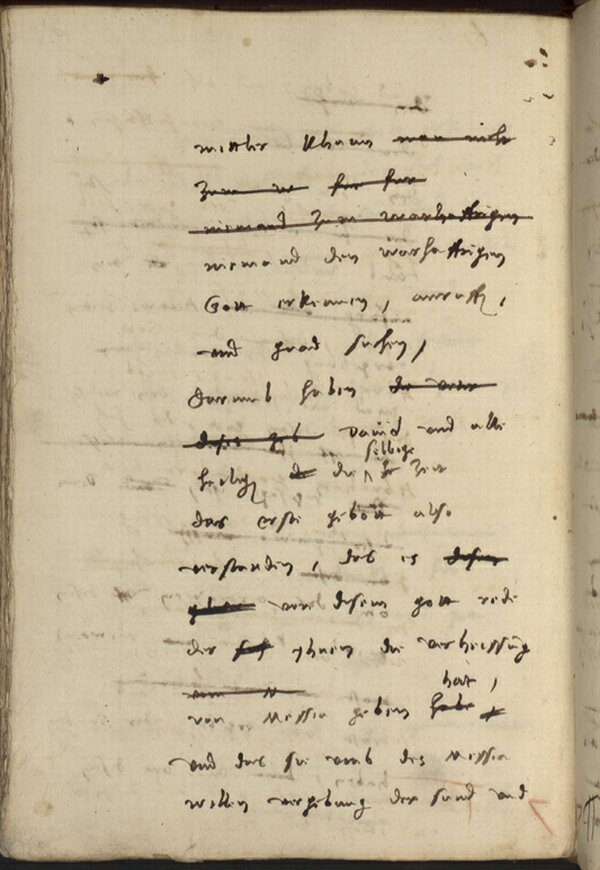 mittler khann man nicht
zum
niemand zum warhafftigen
niemand den warhafftigen
Gott erkennen, anruff,
und gnad suchen,
Darumb haben
dises geb David und alle
selbige
heilig die zeit
das erste gebott also
verstanden, das es disen
von disem gott rede
der yhnen die verheissung
hat,
von Messia geben habe,
und das sie umb des Messia
willen vergebung der sund und